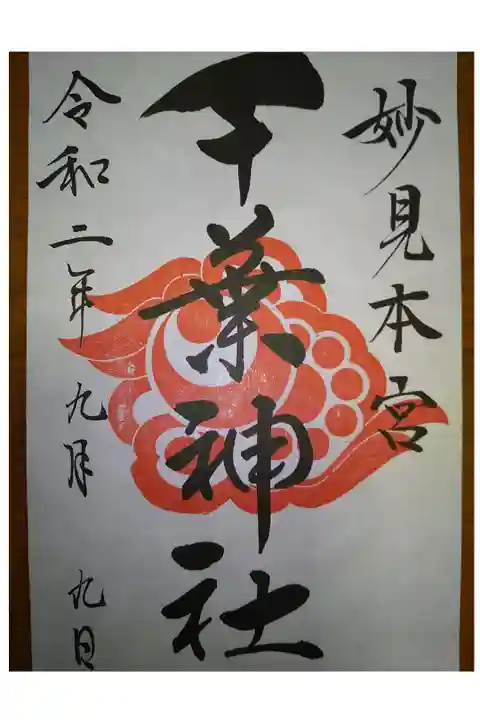 妙見本宮
千葉神社
令和二年九月九日